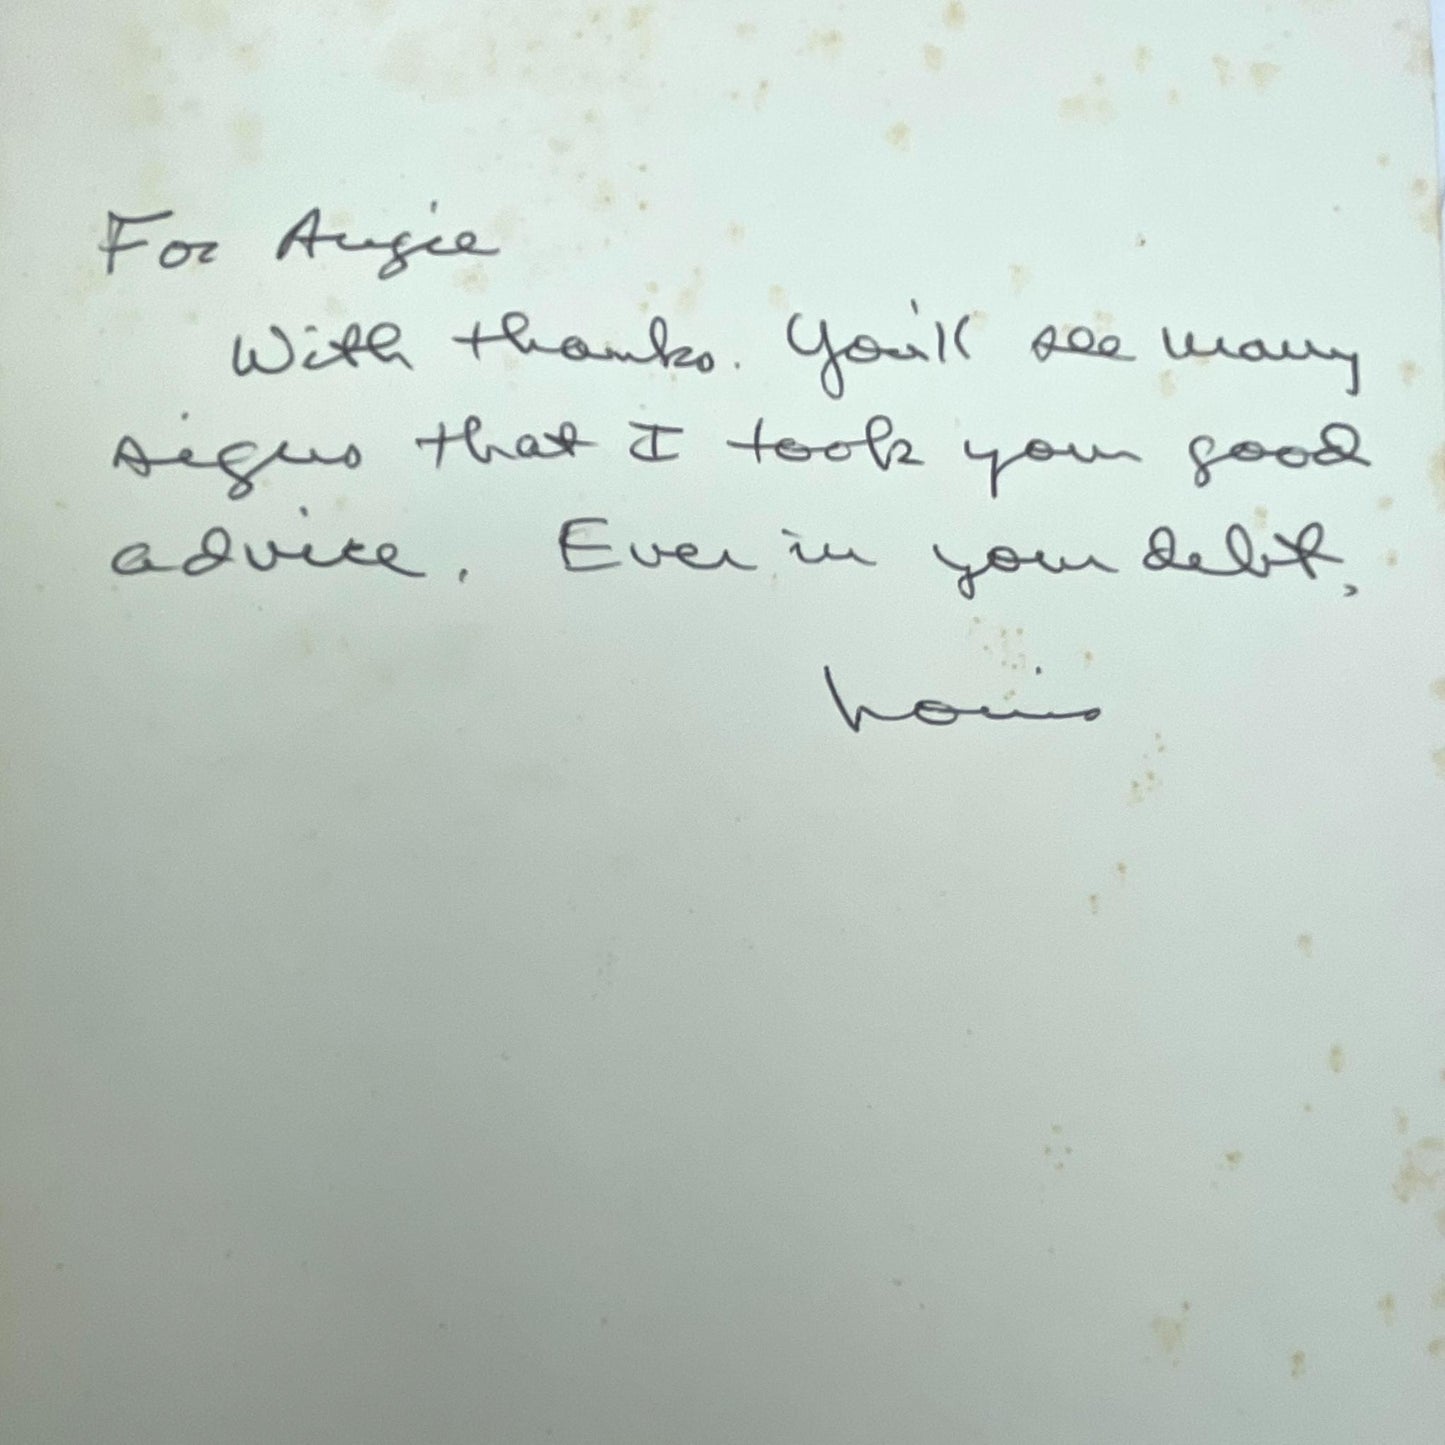 For Angie
With thanks. You'll see many
signs that I took your good
advice. Ever in your debt,
Louis